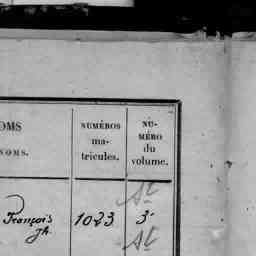 OMS
NOMS.
NUMÉROS
ma-
tricules.
NU-
MÉRO
du
volume.
François
Jh.
1023
3